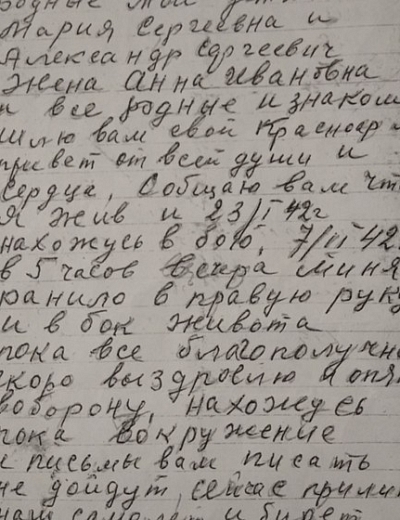 родные мои
Мария Сергеевна и
Александр Сергеевич
Жена Анна Ивановна
и все родные и знаком
шлю вам свой Красноар
привет от всей души и
сердца, Собщаю вам чт
Я жив и 23/I 42г
нахожусь в бою, 7/II 42
в 5 часов вечера миня
ранило в правую рук
и в бок живота
пока все благополучн
скоро выздровлю и опя
воборону, нахожусь
пока вокружение
и письмы вам писать
не дойдут, сейчас прили
наш самолет и берет